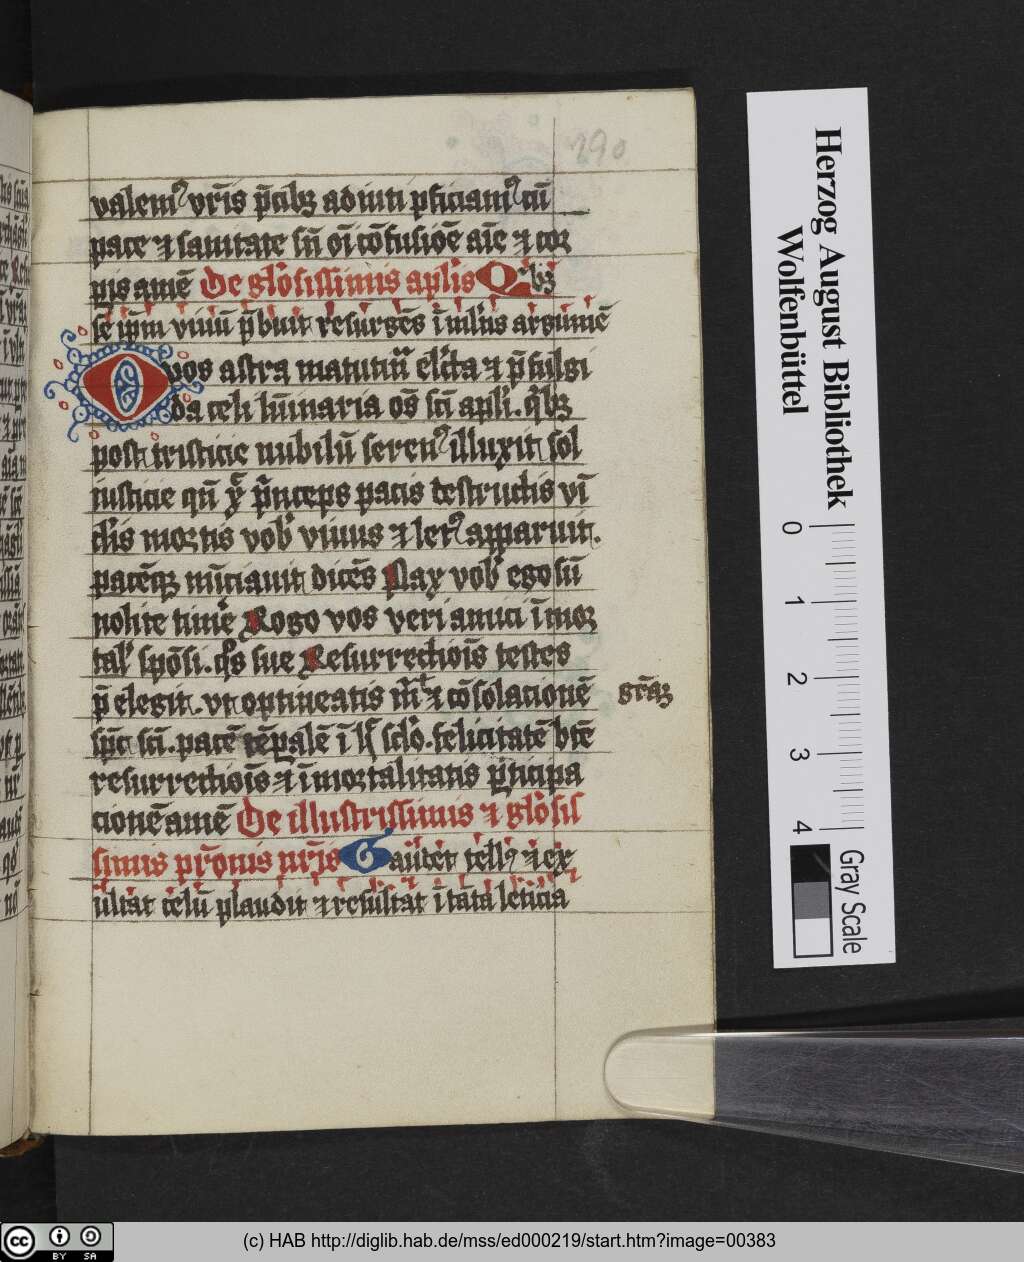 190
valem⁹ vr̄is p̄cibꝫ adiuti ꝑficiam⁹ cū
pace ⁊ sanitate sn̄ oī cōfusiōe aīe ⁊ cor
ꝑis amē De gl'osissimis aplis Qⁱbꝫ
se ip̄m viuū p̄buit resurgēs ī ml'tis argumē
O vos astra matutīa el'cta ⁊ p̄fulgi
da celi lūinaria oēs sc̄i apli. qⁱbꝫ
post tristicie nubilū seren⁹ illuxit sol
iusticie qn̄ xp̄ p̄nceps pacis destructis vī
cl'is mortis vob' viuus ⁊ let⁹ apparuit.
pacēqꝫ nūciauit dicēs Pax vob' ego sū
nolite timē Rogo vos veri amici īmor
tal' spōsi. qᵒs sue Resurrectiōis testes
p̄elegit. vt optineatis m̄ ⁊ cōsolacionē
gr̄aꝫ
sp̄c sc̄i. pacē tēpalē ī h̄ sclo. felicitatē btē
resurrectiōis ⁊ īmortalitatis ꝑticipa
cionē amē De illustrissimis ⁊ gl'osis
simis pr̄onis nr̄is Gaudet tell⁹ ⁊ ex
ultat celū plaudit ⁊ resultat ī tāta leticia
Herzog August Bibliothek
Wolfenbüttel
0 1 2 3 4
Gray Scale
cc BY SA
(c) HAB http://diglib.hab.de/mss/ed000219/start.htm?image=00383